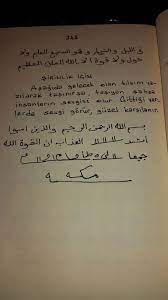 فى الليل والنهار وهو السميع العليم ولا
حول ولا قوة الا بالله العلى العظيم
ŞİRİNLİK İÇİN
Aşağıda gelecek olan tılsım ya-
zılarak taşınırsa, taşıyan şahsa
insanların sevgisi olur. Gittiği yer-
lerde sevgi görür, güzel karşılanır.
بسم الله الرحمن الرحيم والذين امنوا
اشد العذاب ان القوة لله
جميعا